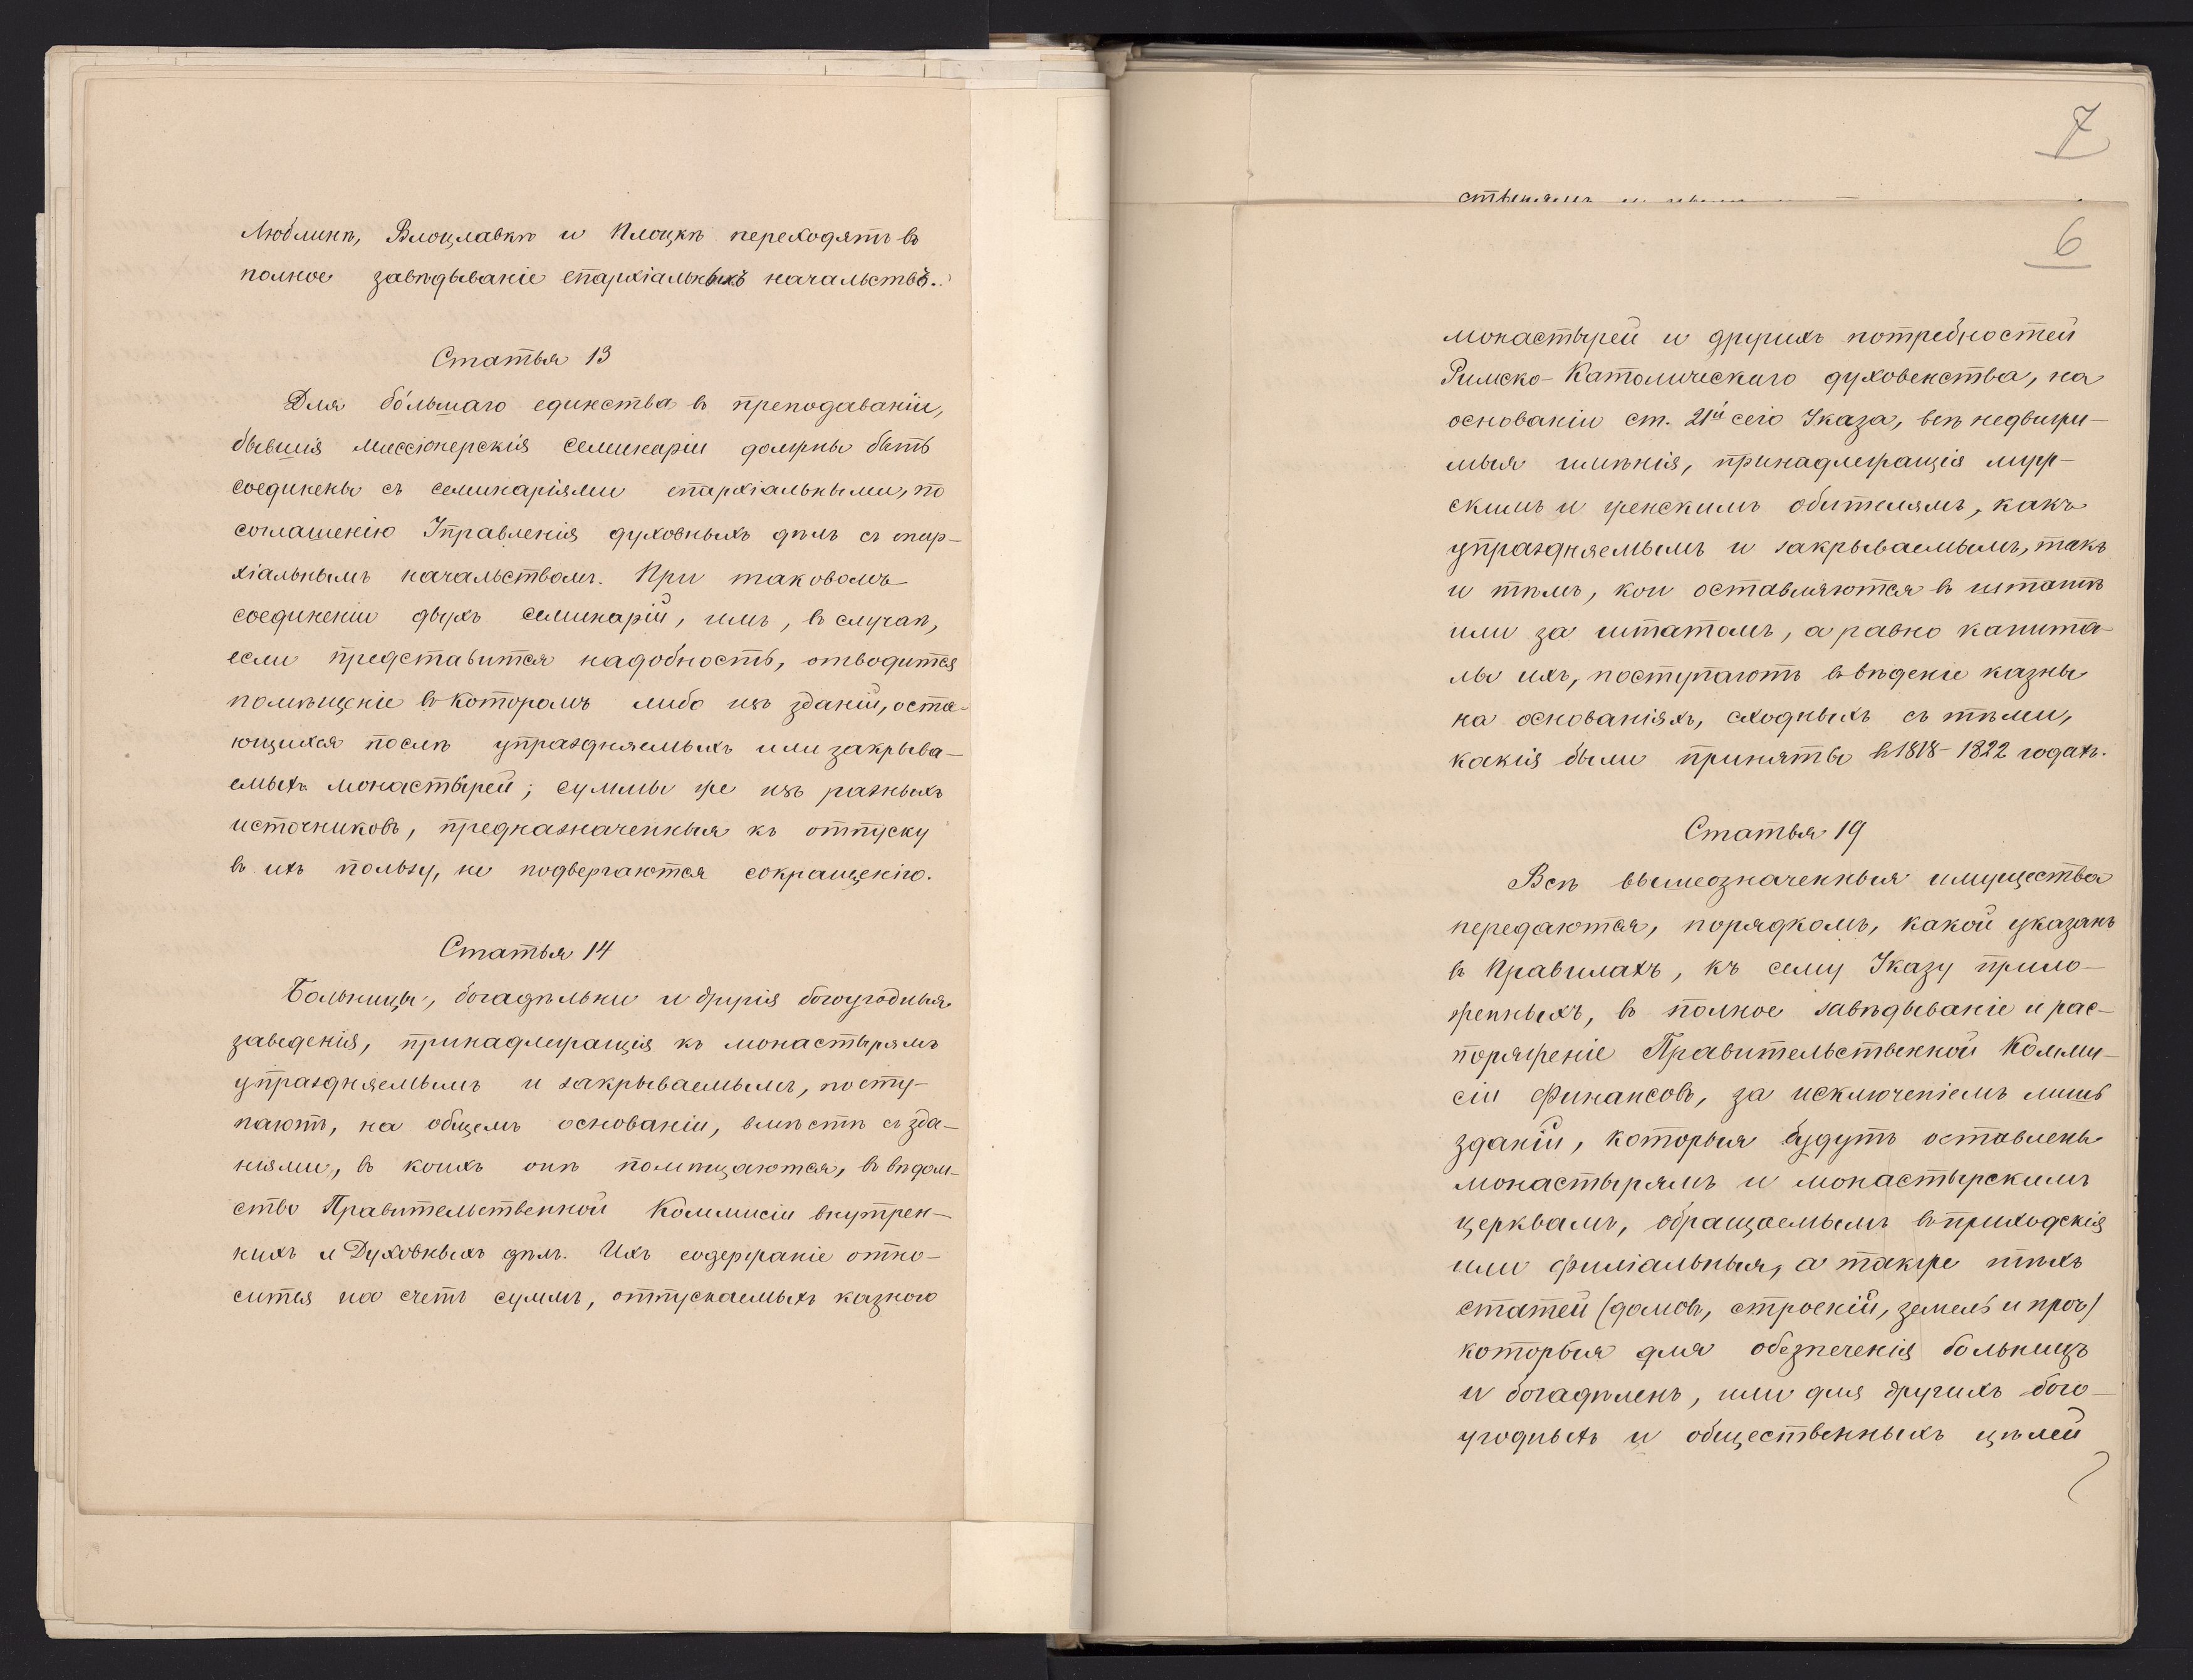 Люблинѣ, Влоцлавкѣ и Плоцкѣ переходятъ въ
полное завѣдываніе епархіальныхъ начальствъ.
Статья 13
Для бо́льшаго единства въ преподаваніи,
бывшія миссіонерскія семинаріи должны быть
соединены съ семинаріями епархіальными, по
соглашенію Управленія духовныхъ дѣлъ съ епар-
хіальнымъ начальствомъ. При таковомъ
соединеніи двухъ семинарій, имъ, въ случаѣ,
если представится надобность, отводится
помѣщеніе въ которомъ либо изъ зданій, оста-
ющихся послѣ упраздняемыхъ или закрыва-
емыхъ монастырей; суммы же изъ разныхъ
источниковъ, предназначенныя къ отпуску
въ ихъ пользу, не подвергаются сокращенію.
Статья 14
Больницы, богадѣльни и другія богоугодныя
заведенія, принадлежащія къ монастырямъ
упраздняемымъ и закрываемымъ, посту-
паютъ, на общемъ основаніи, вмѣстѣ съ зда-
ніями, въ коихъ онѣ помѣщаются, въ вѣдом-
ство Правительственной Коммисіи внутрен-
нихъ и Духовныхъ дѣлъ. Ихъ содержаніе отно-
сится на счетъ суммъ, отпускаемыхъ казною
7
6
монастырей и другихъ потребностей
Римско-Католическаго духовенства, на
основаніи ст. 21й сего Указа, всѣ недвижи-
мыя имѣнія, принадлежащія муж-
скимъ и женскимъ обителямъ, какъ
упраздняемымъ и закрываемымъ, такъ
и тѣмъ, кои оставляются въ штатѣ
или за штатомъ, а равно капита-
лы ихъ, поступаютъ въ вѣденіе казны
на основаніяхъ, сходныхъ съ тѣми,
какія были приняты въ 1818-1822 годахъ.
Статья 19
Всѣ вышеозначенныя имущества
передаются, порядкомъ, какой указанъ
въ Правилахъ, къ сему Указу прило-
женныхъ, въ полное завѣдываніе и рас-
поряженіе Правительственной Комми-
сіи Финансовъ, за исключеніемъ лишь
зданій, которыя будутъ оставлены
монастырямъ и монастырскимъ
церквамъ, обращаемымъ въ приходскія
или филіальныя, а также тѣхъ
статей (домовъ, строеній, земель и проч)
которыя для обезпеченія больницъ
и богадѣленъ, или для другихъ бого-
угодныхъ и общественныхъ цѣлей